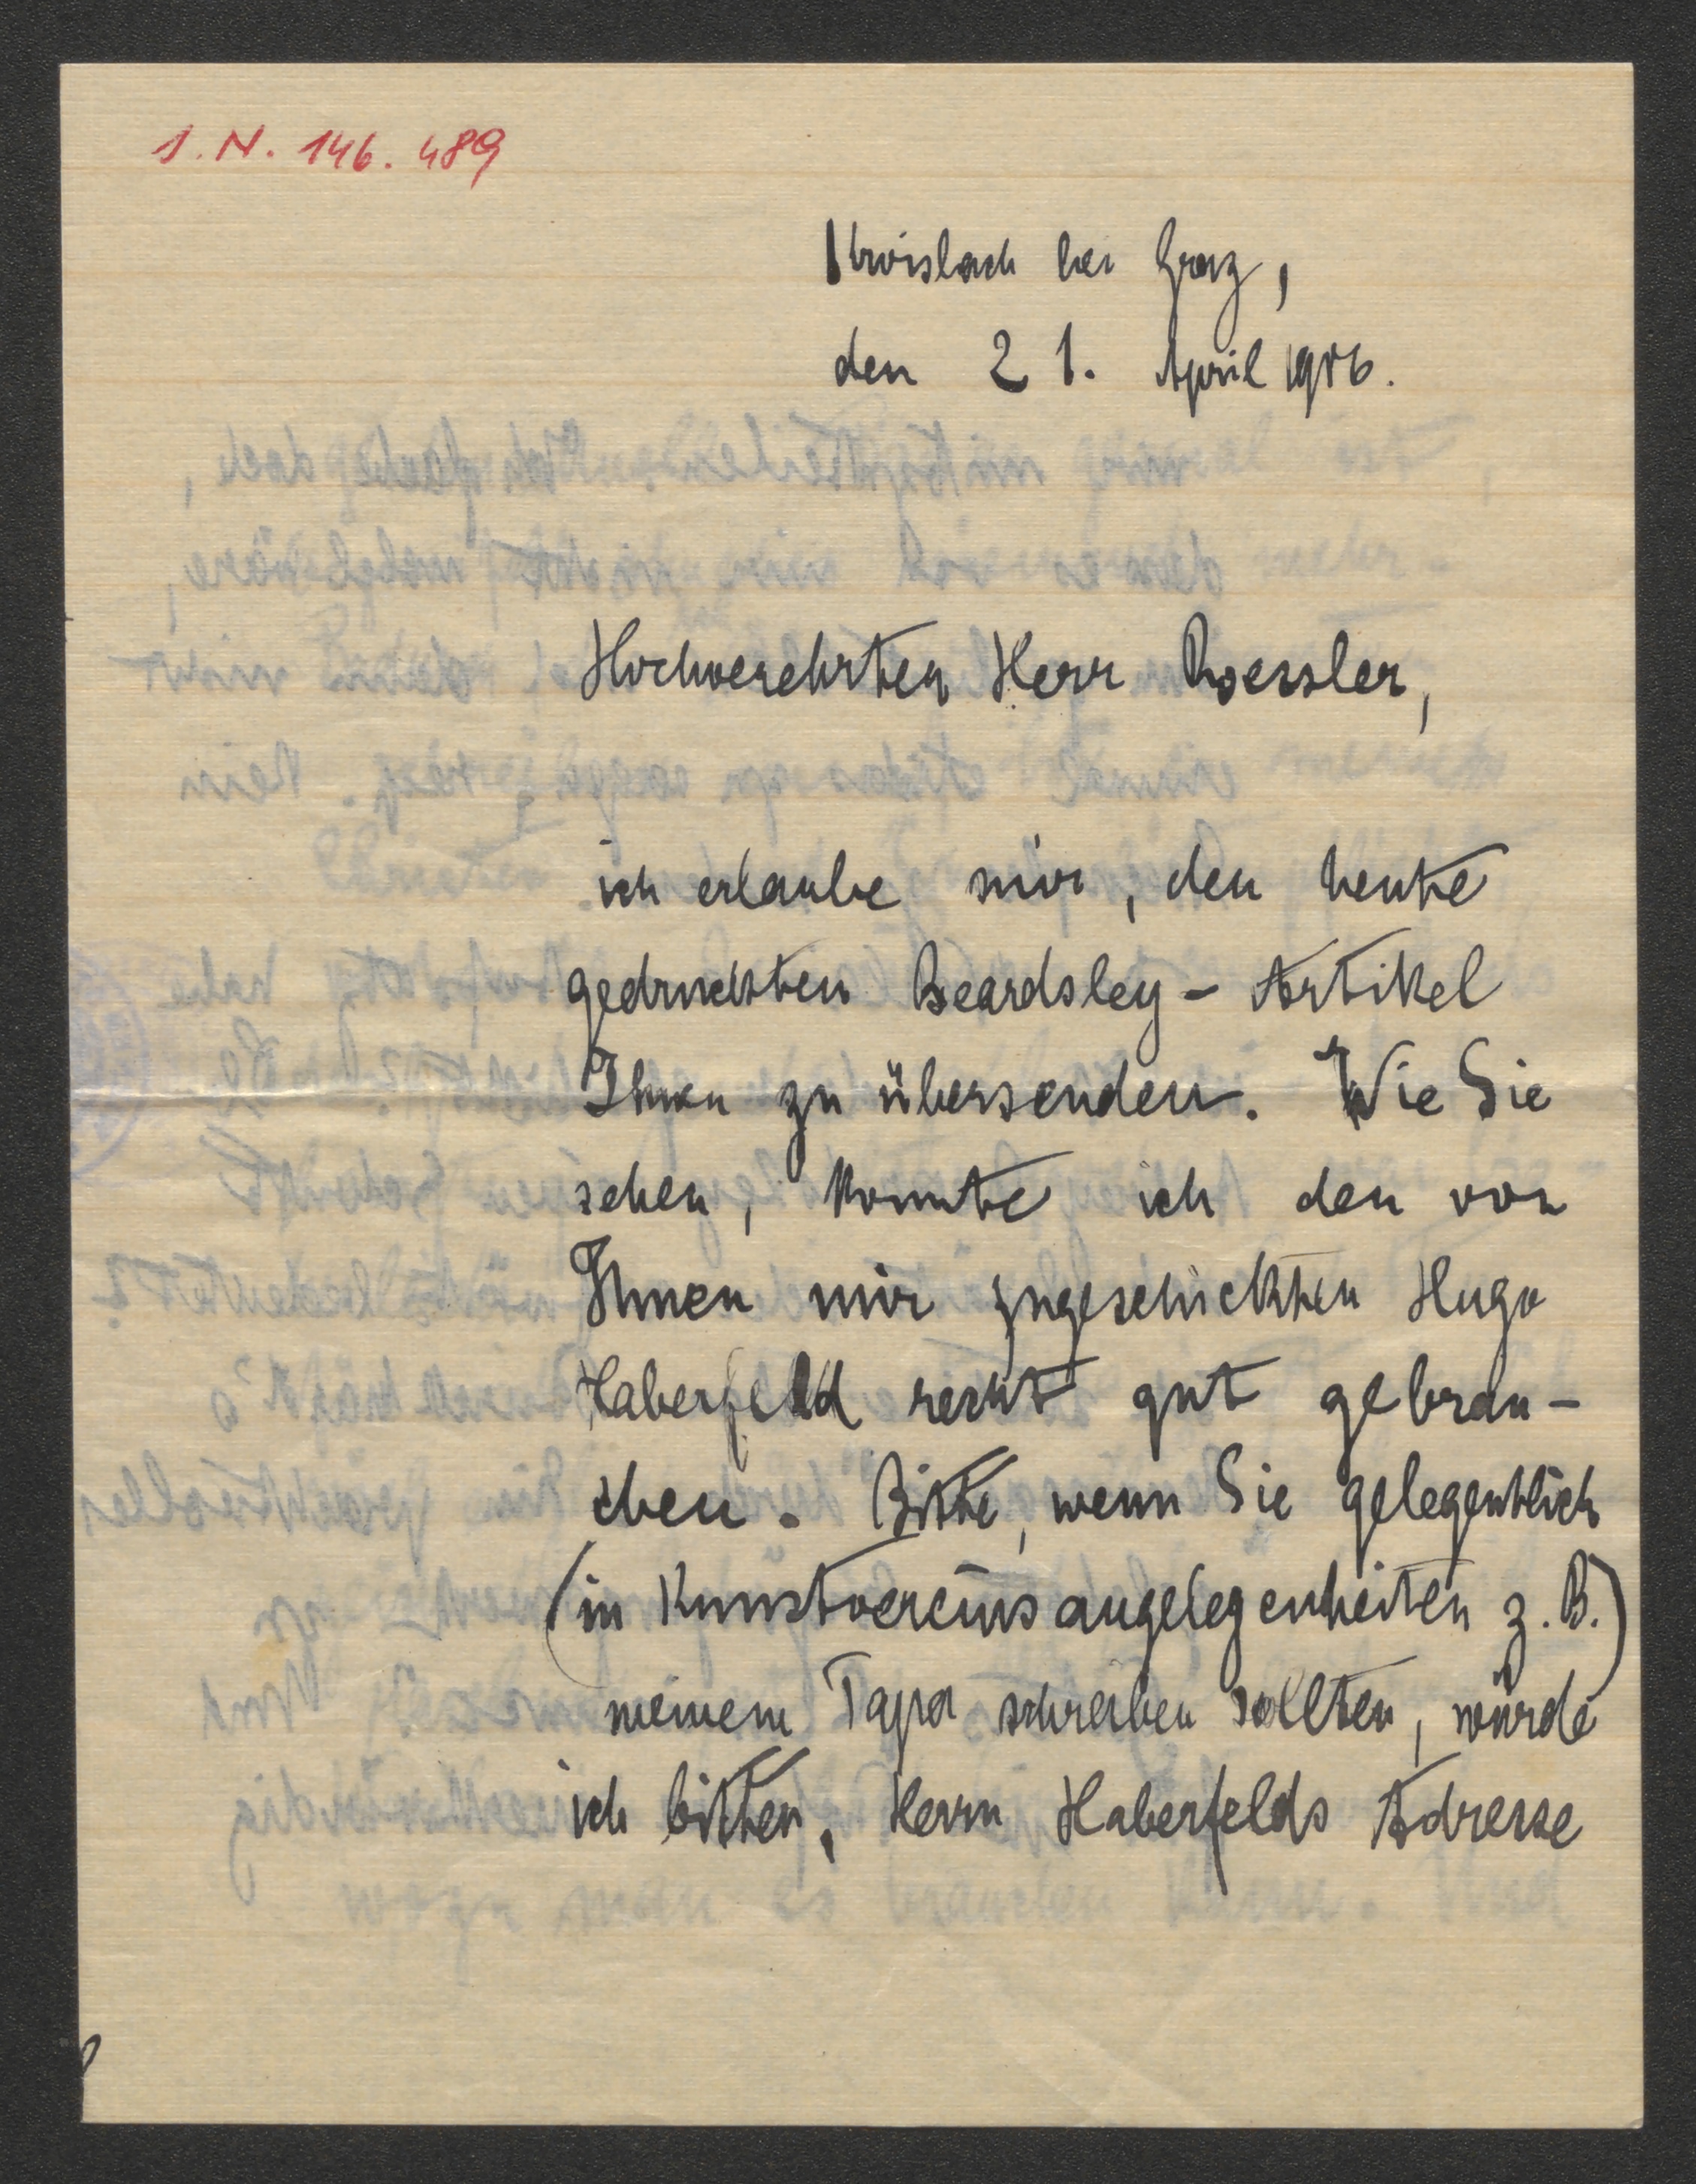 I. N. 146.489
Kroisbach bei Graz,
den 21. April 1906.
Hochverehrter Herr Roessler,
ich erlaube mir, den heute
gedruckten Beardsley-Artikel
Ihnen zu übersenden. Wie Sie
sehen, konnte ich den von
Ihnen mir zugeschickten Hugo
Haberfeld recht gut gebrau-
chen. Bitte, wenn Sie gelegentlich
(in Kunstvereinsangelegenheiten z. B.)
meinem Papa schreiben sollten, würde
ich bitten, Herrn Haberfelds Adresse